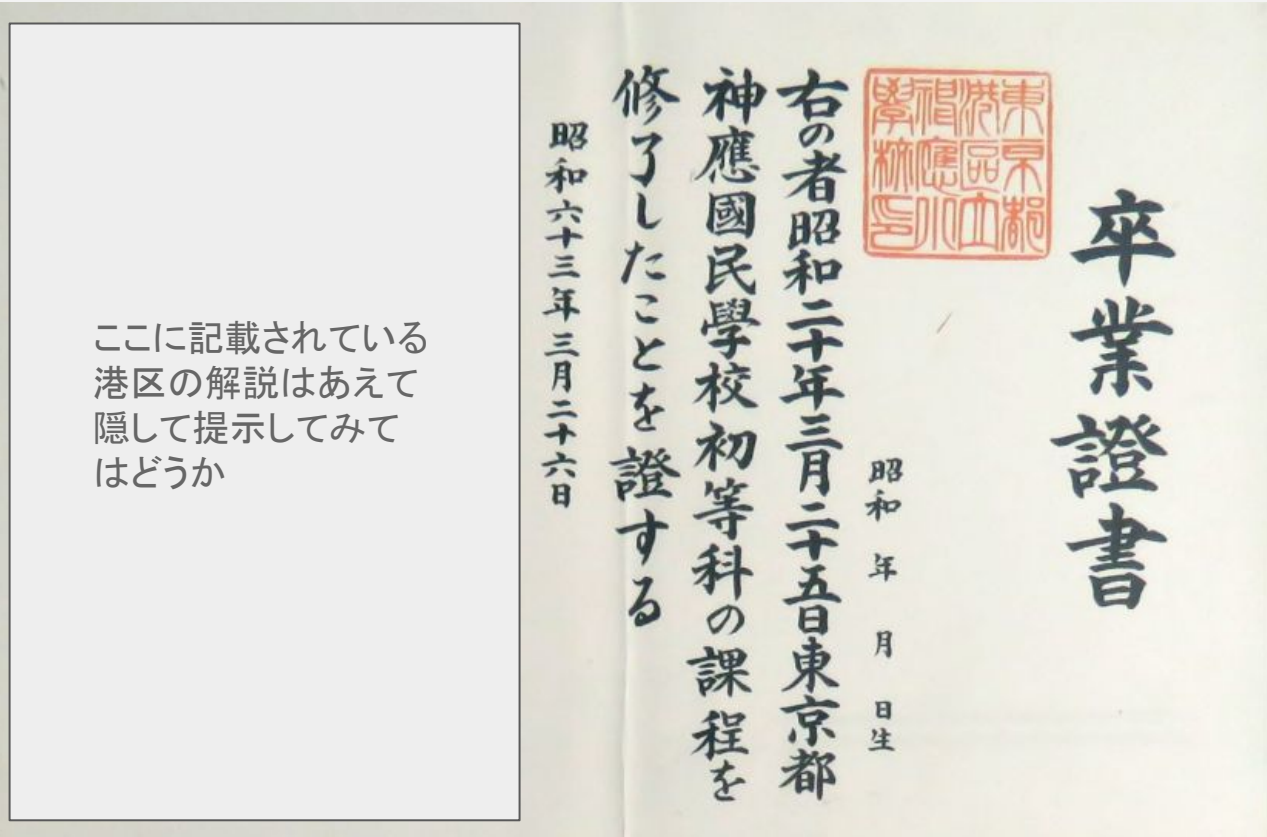 卒業證書
東京都
港區立
神應小
學校印
昭和 年 月 日生
右の者昭和二十年三月二十五日東京都
神應國民學校初等科の課程を
修了したことを證する
昭和六十三年三月二十六日
ここに記載されている
港区の解説はあえて
隠して提示してみて
はどうか